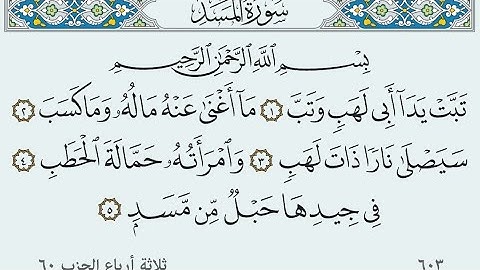 سُورَةُ المَسَدِ
بِسْمِ ٱللَّهِ ٱلرَّحْمَٰنِ ٱلرَّحِيمِ
تَبَّتْ يَدَآ أَبِى لَهَبٍ وَتَبَّ ١ مَآ أَغْنَىٰ عَنْهُ مَالُهُۥ وَمَا كَسَبَ ٢
سَيَصْلَىٰ نَارًا ذَاتَ لَهَبٍ ٣ وَٱمْرَأَتُهُۥ حَمَّالَةَ ٱلْحَطَبِ ٤
فِى جِيدِهَا حَبْلٌ مِّن مَّسَدٍۭ ٥
ثلاثة أرباع الحزب ٦٠ ٦٠٣